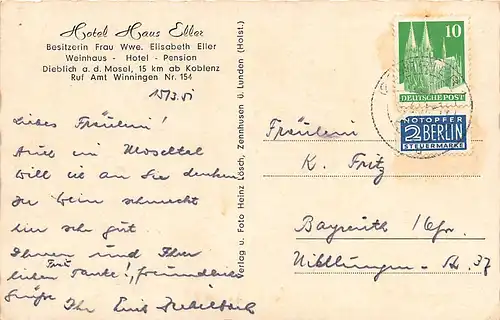 Hotel Haus Eller
Besitzerin Frau Wwe. Elisabeth Eller
Weinhaus - Hotel - Pension
Dieblich a. d. Mosel, 15 km ab Koblenz
Ruf Amt Winningen Nr. 154
15/3.51
Liebes Fräulein!
Auch im Moseltal
will ich an Sie denken
der Wein schmeckt
hier sehr gut
Ihnen und Ihrer
lieben Tante! freundliche
Grüße Ihr
Verlag u. Foto Heinz Lösch, Zennhusen ü. Lunden (Holst.)
10
DEUTSCHE POST
NOTOPFER
2 BERLIN
STEUERMARKE
Fräulein
K. Fritz
Bayreuth
Nibelungen-Str. 37